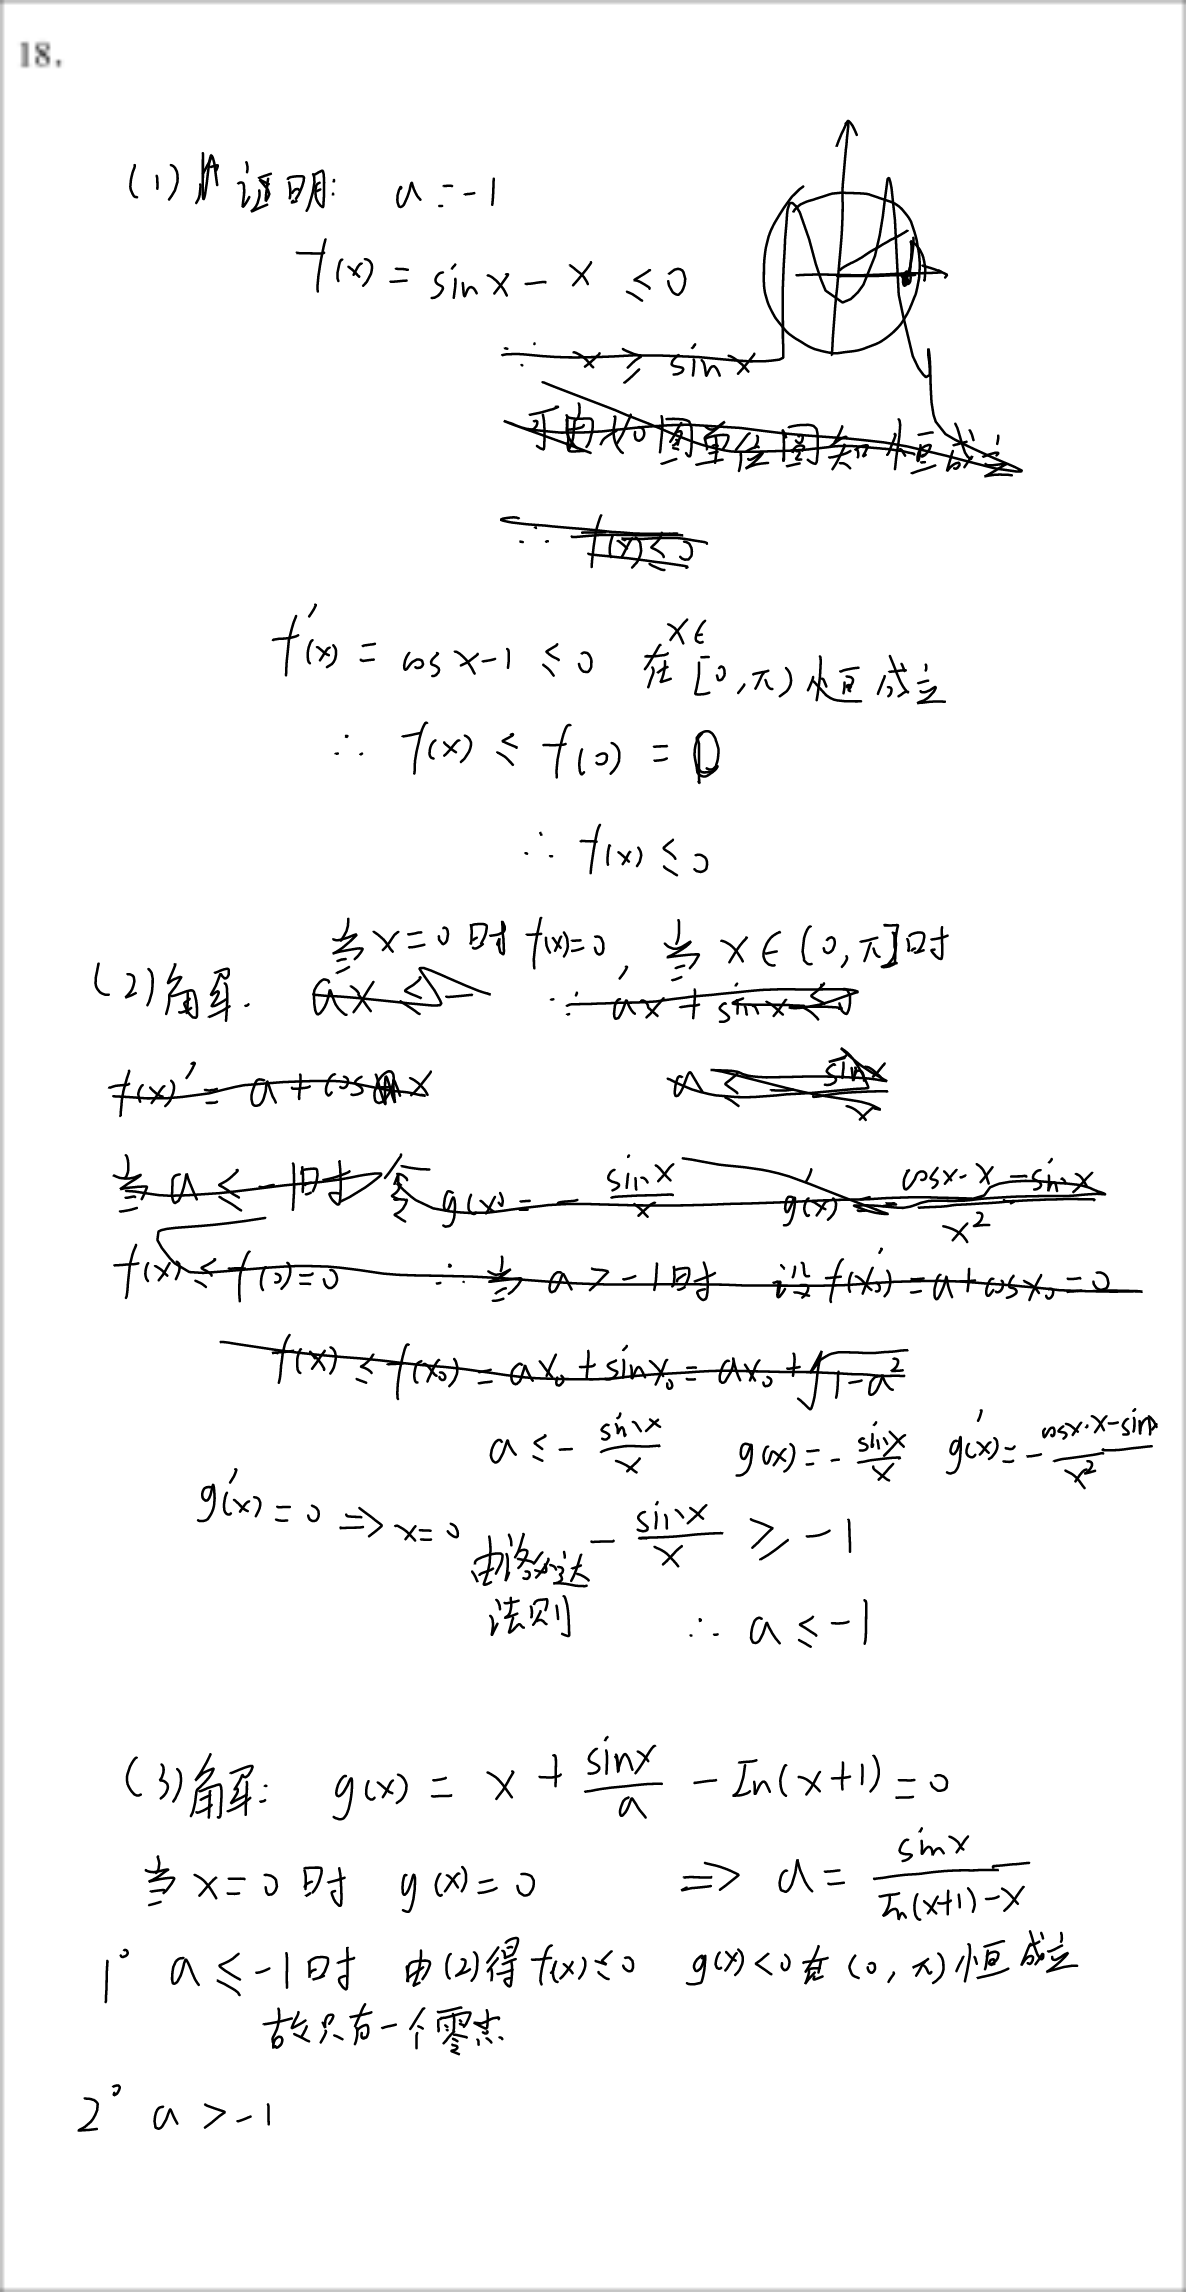 18.
(1) 证明: a=-1
f(x) = sinx - x ≤ 0
∵ x ≥ sinx
可由如图单位圆知恒成立
∴ f(x) ≤ 0
f'(x) = cosx-1 ≤ 0 在 x∈[0,π) 恒成立
∴ f(x) ≤ f(0) = 0
∴ f(x) ≤ 0
当x=0时 f(x)=0, 当 x∈(0,π]时
(2)解. ax ≤ - ∵ ax + sinx ≤ 0
f(x)' = a + cosx a ≤ - sinx/x
当 a ≤ -1时 令 g(x) = - sinx/x g'(x) = cosx·x - sinx / x²
f(x) ≤ f(0)=0 ∴ 当 a > -1时 设 f'(x₀) = a+cosx₀ = 0
f(x) ≤ f(x₀) = ax₀ + sinx₀ = ax₀ + √(1-a²)
a ≤ - sinx/x g(x) = - sinx/x g'(x) = - cosx·x-sinx / x²
g'(x) = 0 ⇒ x=0 由洛必达法则 - sinx/x ≥ -1
∴ a ≤ -1
(3)解: g(x) = x + sinx/a - ln(x+1) = 0
当 x=0时 g(x)=0 ⇒ a = sinx / ln(x+1)-x
1° a ≤ -1时 由(2)得 f(x) ≤ 0 g(x)<0在 (0, π)恒成立
故只有一个零点
2° a > -1